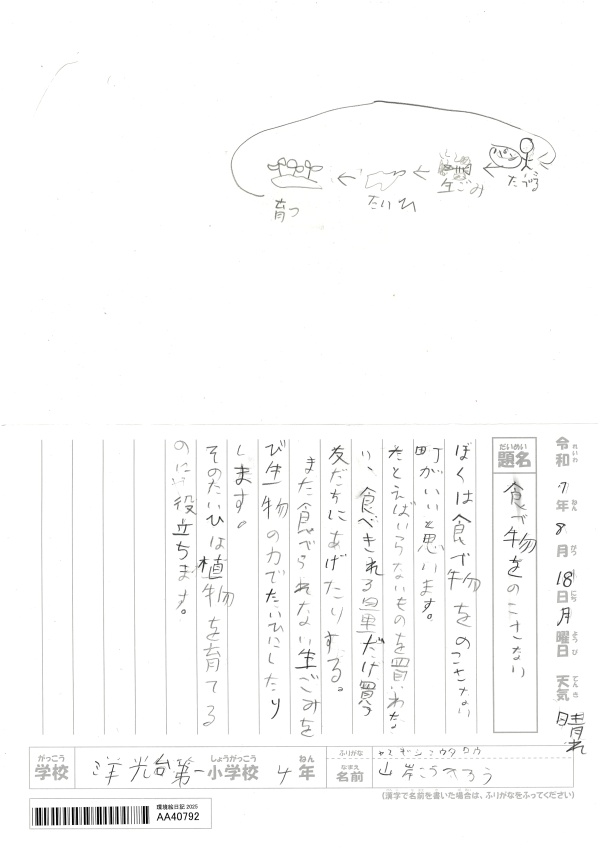 パン
たべる
生ごみ
たいひ
育つ
令和7年8月18日月曜日 天気 晴れ
れいわ ねん がつ にち ようび てんき
だいめい
題名
食べ物をのこさない
ぼくは食べ物をのこさない
町がいいと思います。
たとえばいらないものを買いわな
い、食べきれる量だけ買う
友だちにあげたりする。
また食べられない生ごみを
び生物の力でたいひにしたり
します。
そのたいひは植物を育てる
のに役立ちます。
がっこう しょうがっこう ねん
学校 洋光台第一小学校 4年
ふりがな
なまえ
名前 山岸こうたろう
(漢字で名前を書いた場合は、ふりがなをふってください)
環境絵日記2025
AA40792